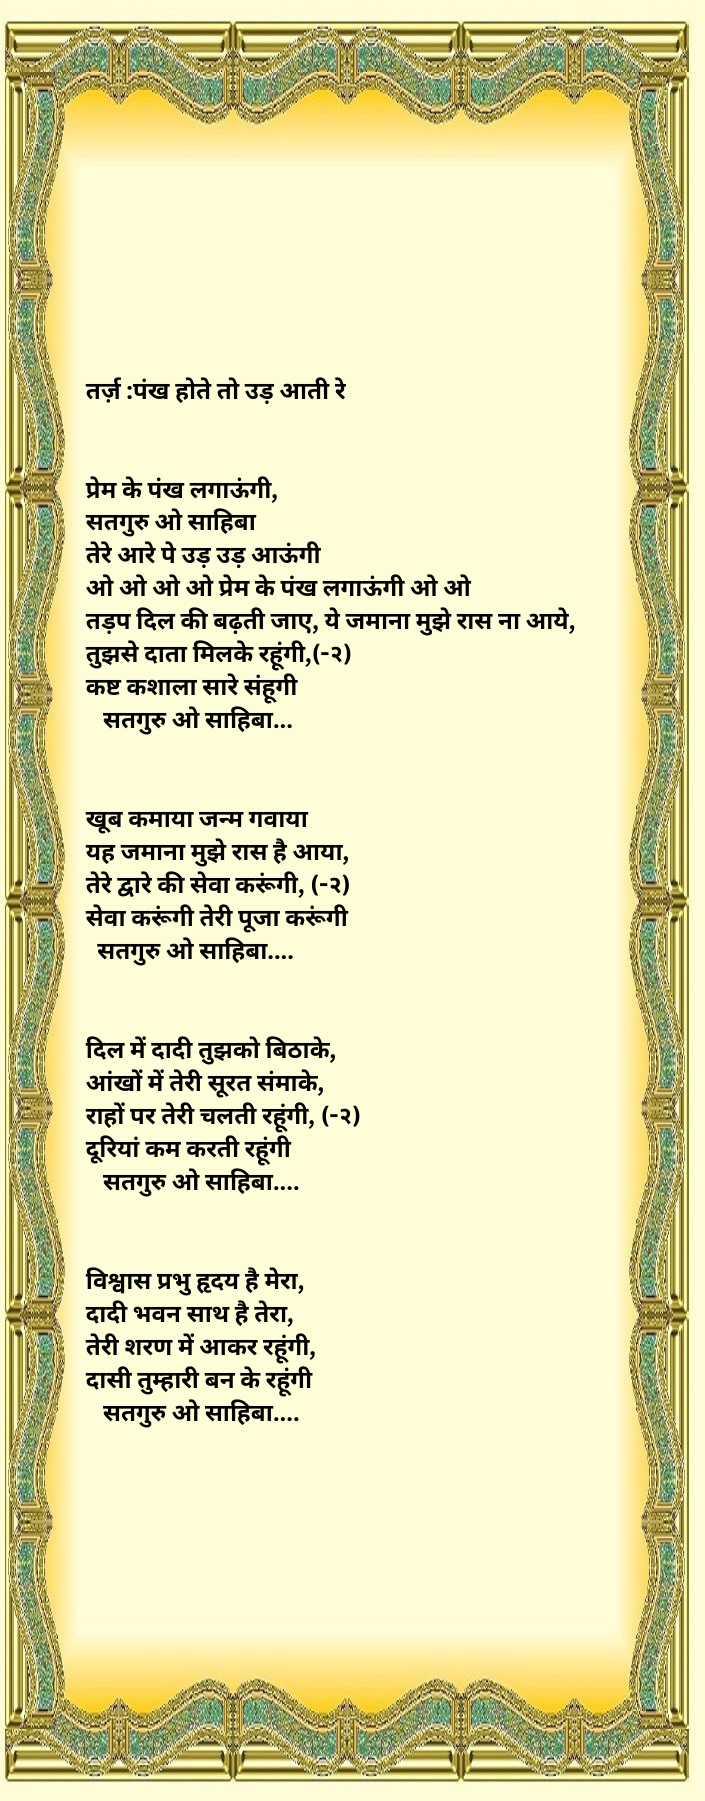 तर्ज़ :पंख होते तो उड़ आती रे
प्रेम के पंख लगाऊंगी,
सतगुरु ओ साहिबा
तेरे आरे पे उड़ उड़ आऊंगी
ओ ओ ओ ओ प्रेम के पंख लगाऊंगी ओ ओ
तड़प दिल की बढ़ती जाए, ये जमाना मुझे रास ना आये,
तुझसे दाता मिलके रहूंगी,(-२)
कष्ट कशाला सारे संहूगी
सतगुरु ओ साहिबा...
खूब कमाया जन्म गवाया
यह जमाना मुझे रास है आया,
तेरे द्वारे की सेवा करूंगी, (-२)
सेवा करूंगी तेरी पूजा करूंगी
सतगुरु ओ साहिबा....
दिल में दादी तुझको बिठाके,
आंखों में तेरी सूरत संमाके,
राहों पर तेरी चलती रहूंगी, (-२)
दूरियां कम करती रहूंगी
सतगुरु ओ साहिबा....
विश्वास प्रभु हृदय है मेरा,
दादी भवन साथ है तेरा,
तेरी शरण में आकर रहूंगी,
दासी तुम्हारी बन के रहूंगी
सतगुरु ओ साहिबा....